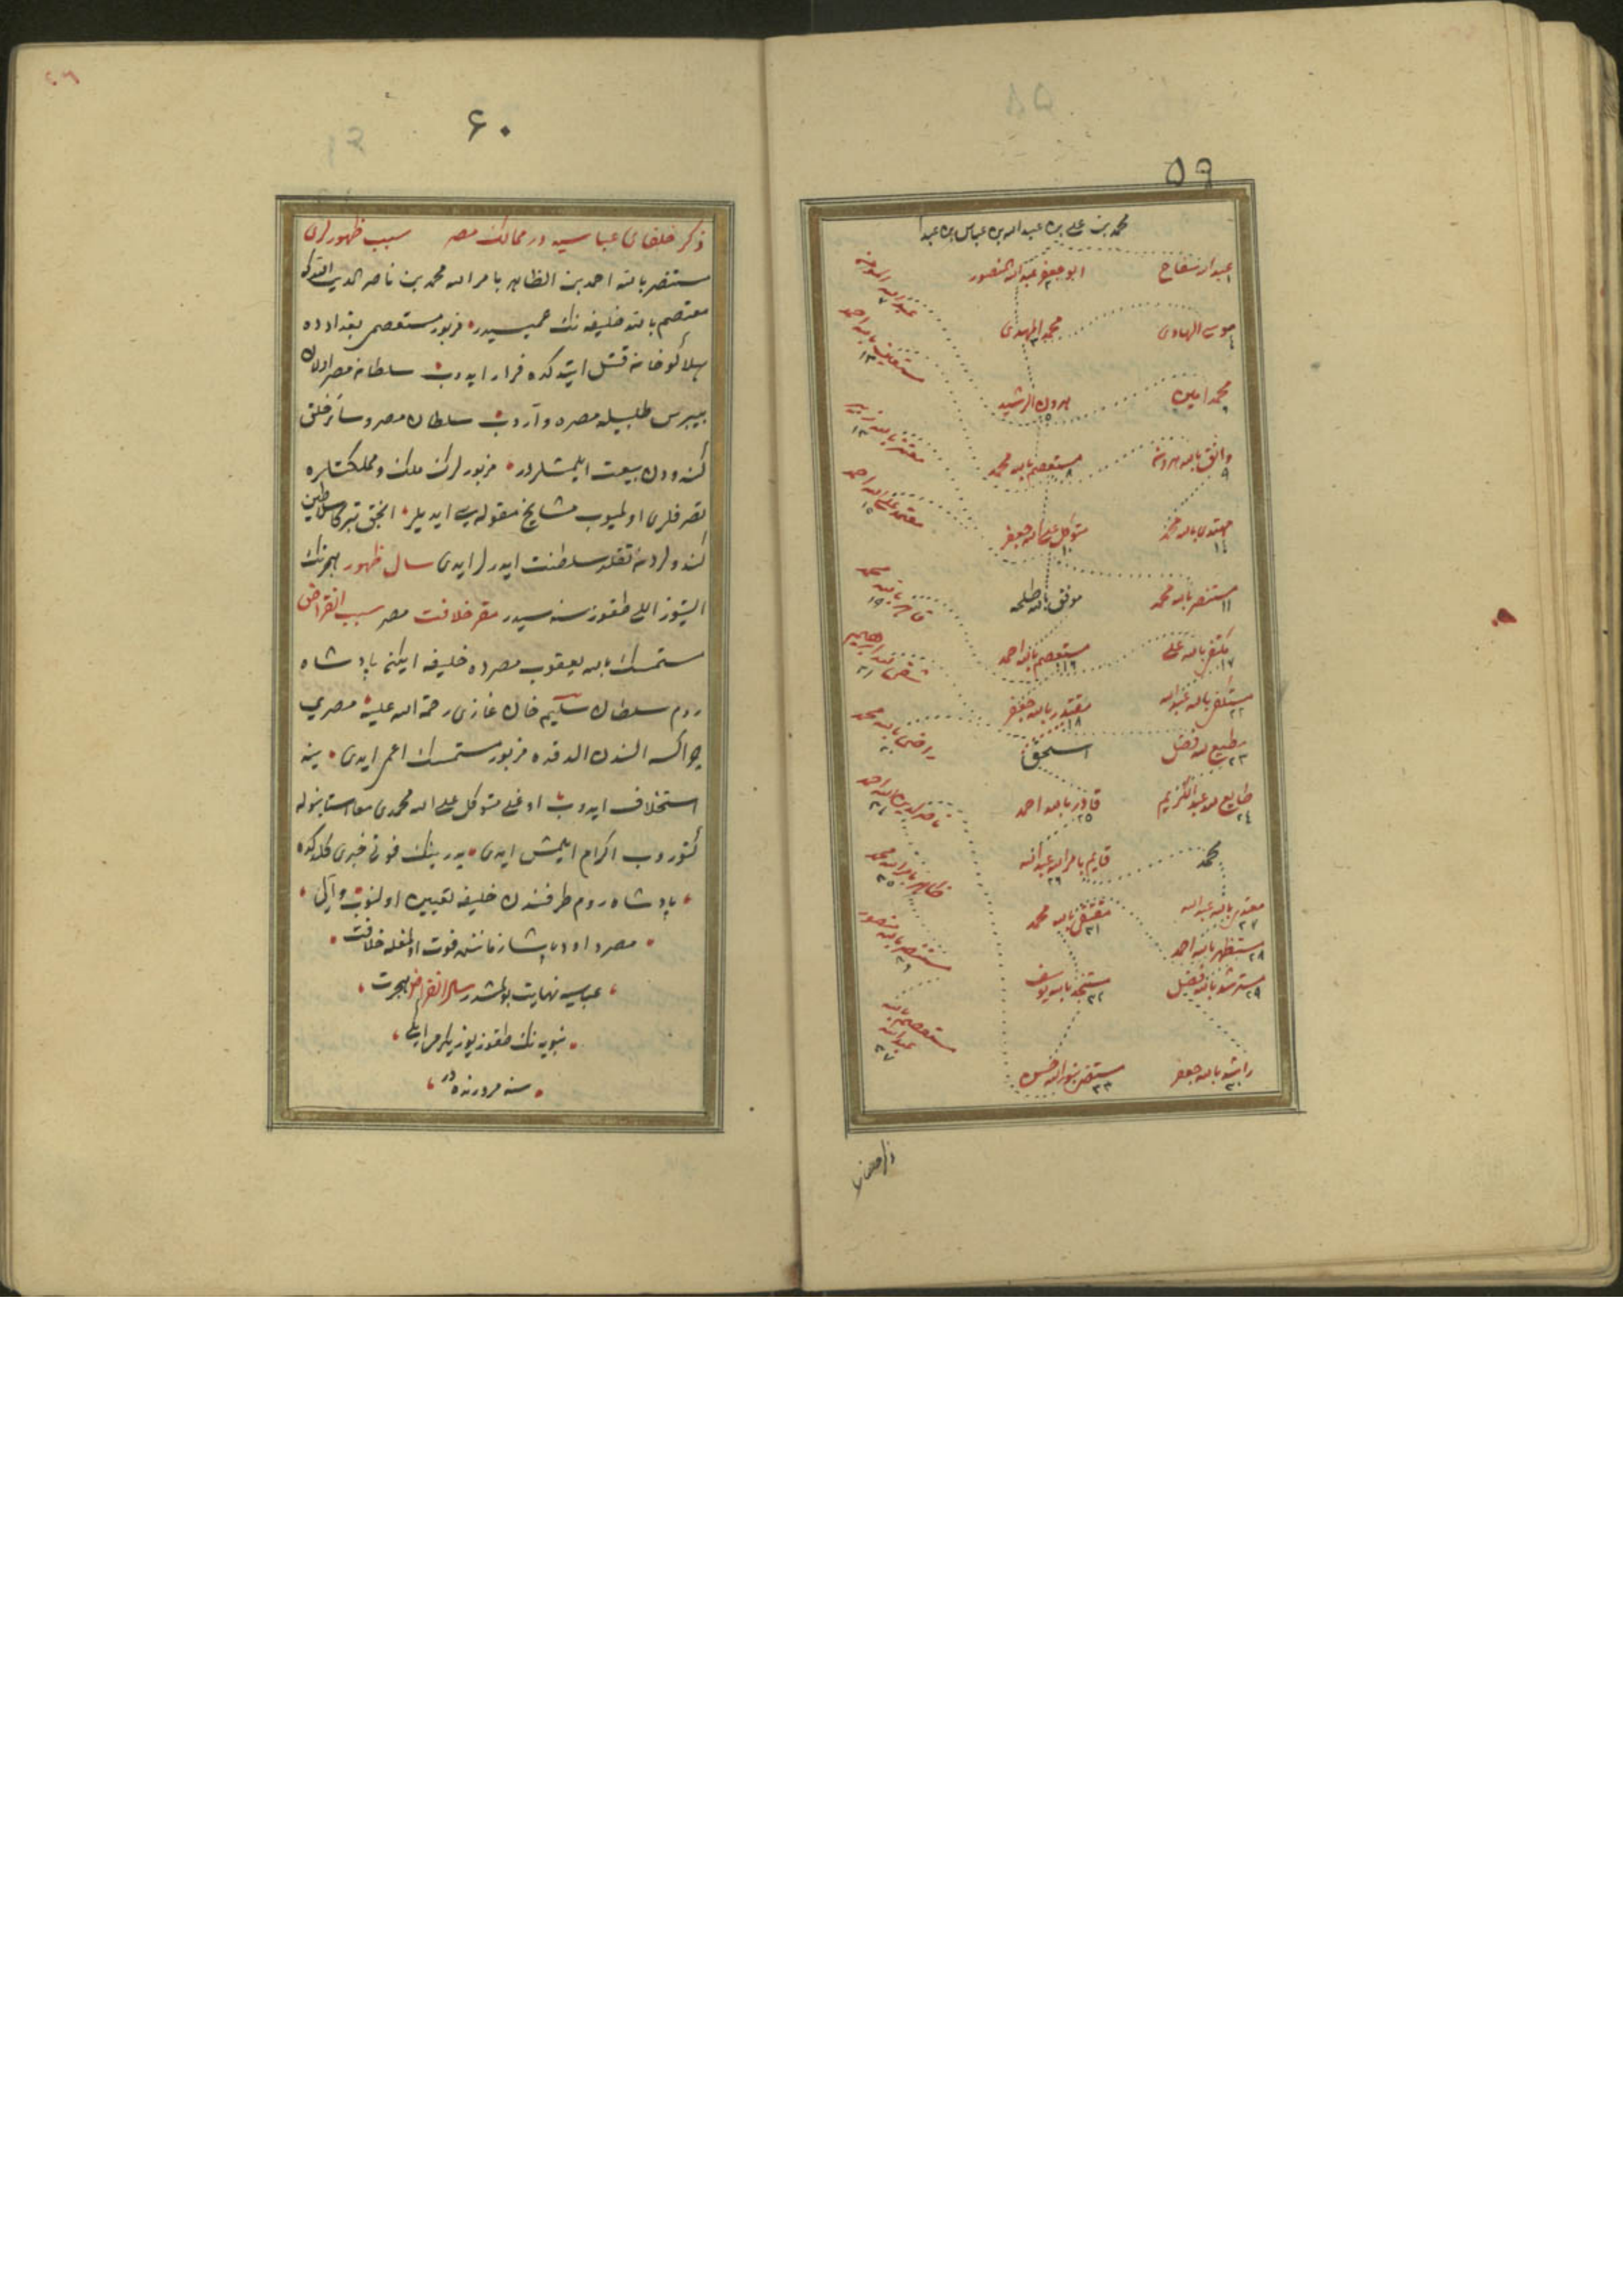 ٥٩
محمد بن علی بن عبد الله بن عباس بن عبد
عبد الله سفاح ١
ابو جعفر عبد الله المنصور ٢
عبد الله المأمون ٧
موسی الهادی ٤
محمد المهدی ٣
مستعین بالله احمد ١٢
محمد امین ٦
هرون الرشید ٥
معتز بالله زبیر ١٣
واثق بالله هرون ٩
مستعصم بالله محمد ٨
معتمد علی الله احمد ١٥
مهتدی بالله محمد ١٤
متوکل علی الله جعفر ١٠
منتصر بالله محمد ١١
موفق بالله طلحه
قاهر بالله محمد ١٩
مکتفی بالله علی ١٧
مستعصم بالله احمد ١٦
متقی لله ابراهیم ٢١
مستکفی بالله عبد الله ٢٢
مقتدر بالله جعفر ١٨
راضی بالله محمد ٢٠
مطیع لله فضل ٢٣
اسحق
طایع لله عبد الکریم ٢٤
قادر بالله احمد ٢٥
ناصر لدین الله احمد ٣٤
محمد
قایم بامر الله عبد الله ٢٦
ظاهر بامر الله محمد ٣٥
مقتدی بالله عبد الله ٢٧
مقتفی بالله محمد ٣١
مستنصر بالله منصور ٣٦
مستظهر بالله احمد ٢٨
مسترشد بالله فضل ٢٩
مستنجد بالله یوسف ٣٢
مستعصم بالله عبد الله ٣٧
راشد بالله جعفر ٣٠
مستضی بنور الله حسن ٣٣
ذکر خلفای
٦٠
ذکر خلفای عباسیه در ممالک مصر سبب ظهورلری
مستنصر بالله احمد بن الظاهر بامر الله محمد بن ناصر الدین الله درکه
معتصم بالله خلیفه نک عمیسیدر مزبور مستعصمی بغدادده
هلاکو خان قتل ایتدکده فرار ایدوب سلطان مصر اولان
بیبرس طلبیله مصره واروب سلطان مصر و سائر خلق
کندودن بیعت ایلمشلردر مزبورلرک ملک و مملکتلره
تصرفلری اولمیوب مشایخ مقوله سی ایدیلر انجق تبرکا سلاطین
کندولردن تقلد سلطنت ایدرلر ایدی سال ظهور هجرتک
التیوز اللی طقوز سنه سیدر مقر خلافت مصر سبب انقراض
مستمسک بالله یعقوب مصرده خلیفه ایکن پادشاه
روم سلطان سلیم خان غازی رحمة الله علیه مصری
چراکسه الندن الدقده مزبور مستمسک اعمی ایدی ینه
استخلاف ایدوب اوغلی متوکل علی الله محمدی معا استانبوله
کتوروب اکرام ایلمش ایدی پدرینک فوتی خبری کلدکده
پادشاه روم طرفندن خلیفه تعیین اولنوب واروب
مصرده داود پاشا زماننده فوت اولمغله خلافت
عباسیه نهایت بولمشدر سال انقراض هجرت
نبویه نک طقوز یوز یکرمی
سنه مرورنده در